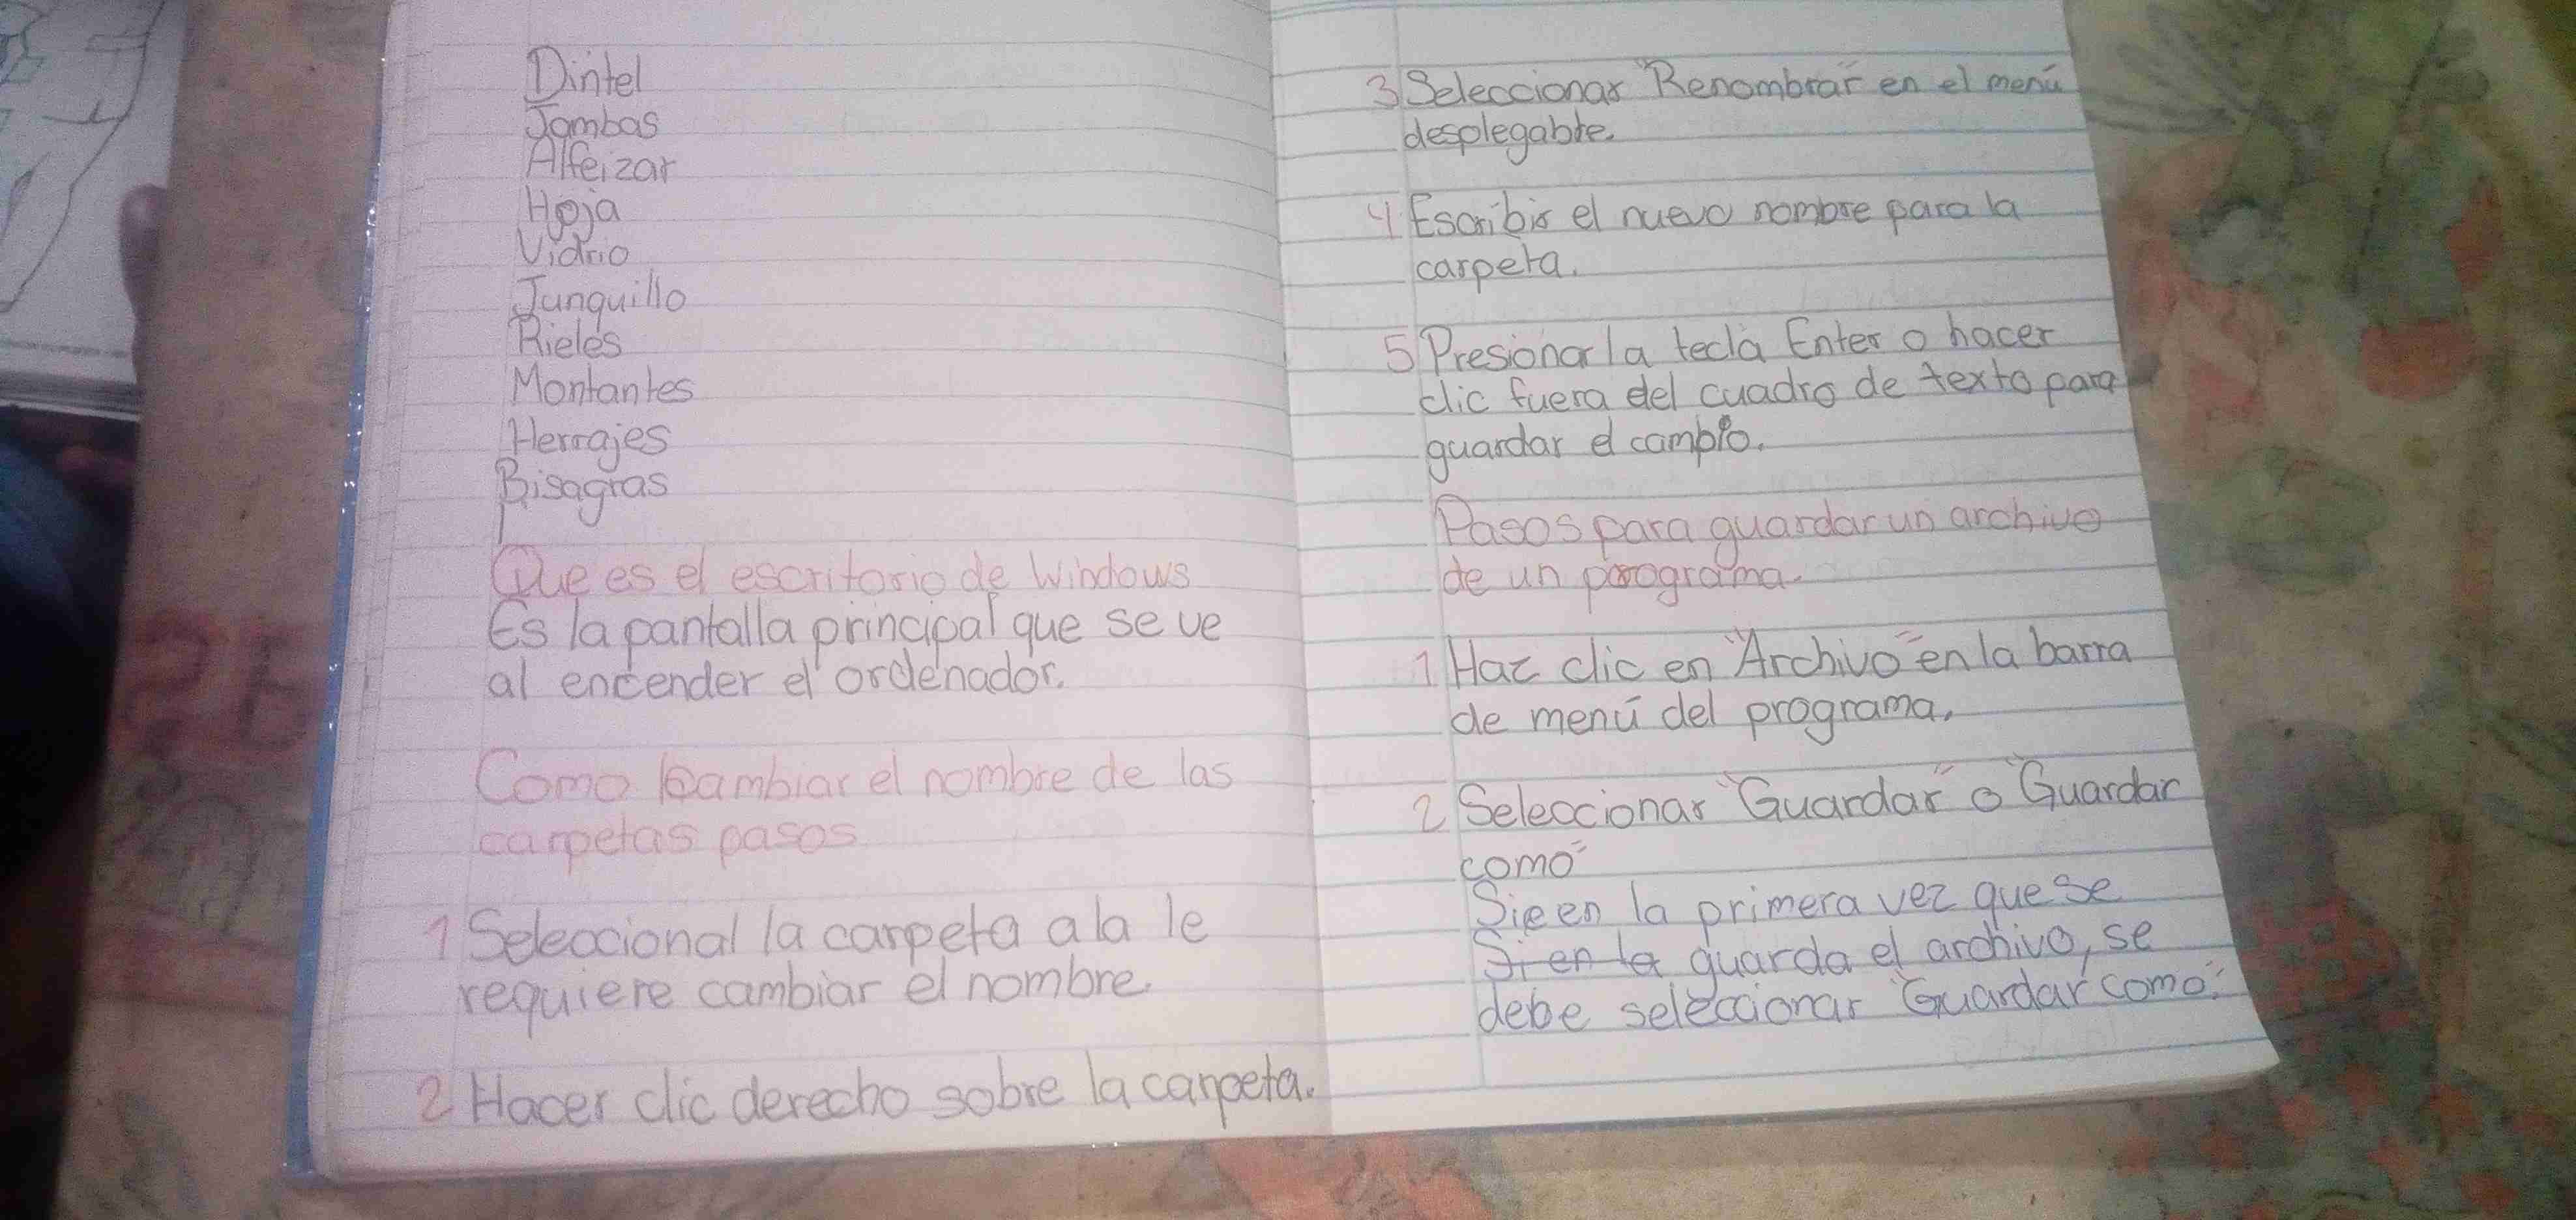 Dintel
Jambas
Alfeizar
Hoja
Vidrio
Junquillo
Rieles
Montantes
Herrajes
Bisagras
Que es el escritorio de Windows
Es la pantalla principal que se ve
al encender el ordenador.
Como cambiar el nombre de las
carpetas pasos
1 Seleccional la carpeta a la le
requiere cambiar el nombre.
2 Hacer clic derecho sobre la carpeta.
3 Seleccionar "Renombrar" en el menú
desplegable.
4 Escribir el nuevo nombre para la
carpeta.
5 Presionar la tecla Enter o hacer
clic fuera del cuadro de texto para
guardar el cambio.
Pasos para guardar un archivo
de un programa.
1 Haz clic en "Archivo" en la barra
de menú del programa.
2 Seleccionar "Guardar" o "Guardar
como"
Si en la primera vez que se
Si en la guarda el archivo, se
debe seleccionar "Guardar como".